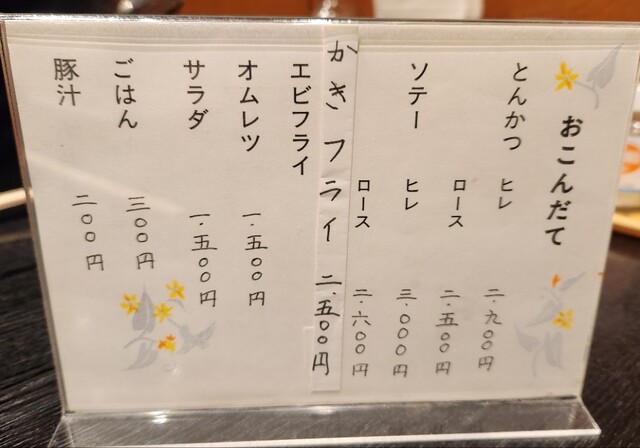 おこんだて
とんかつ ヒレ 二.九〇〇円
ロース 二.五〇〇円
ソテー ヒレ 三.〇〇〇円
ロース 二.六〇〇円
かきフライ 二.五〇〇円
エビフライ
オムレツ 一.五〇〇円
サラダ 一.五〇〇円
ごはん 三〇〇円
豚汁 二〇〇円